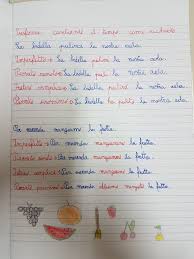 Trasforma cambiando il tempo come richiesto
La bidella pulirà la nostra aula.
Imperfetto: La bidella puliva la nostra aula.
Passato remoto: La bidella pulì la nostra aula.
Futuro semplice: La bidella pulirà la nostra aula.
Passato prossimo: La bidella ha pulito la nostra aula.
Per merenda mangiamo la frutta.
Imperfetto: Per merenda mangiavamo la frutta.
Passato remoto: Per merenda mangiammo la frutta.
Futuro semplice: Per merenda mangeremo la frutta.
Passato prossimo: Per merenda abbiamo mangiato la frutta.